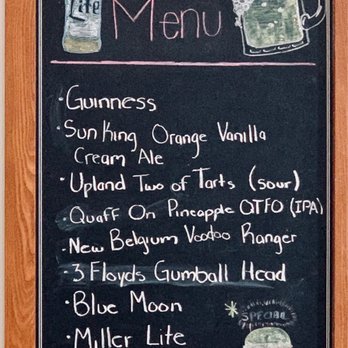 Lite
Menu
· Guinness
· Sun King Orange Vanilla
Cream Ale
· Upland Two of Tarts (sour)
· Quaff On Pineapple OTFO (IPA)
· New Belgium Voodoo Ranger
· 3 Floyds Gumball Head
· Blue Moon
· Miller Lite
SPECIAL